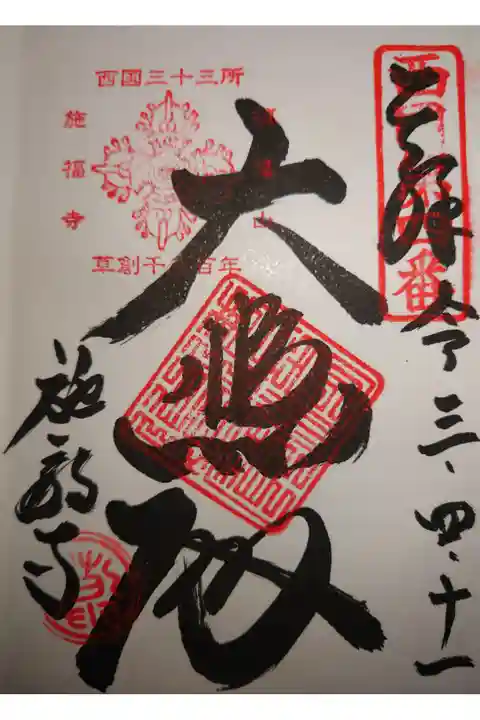 西国第四番
奉拝
令三.四.十一
西国三十三所
施福寺
草創千三百年
大悲殿
施福寺